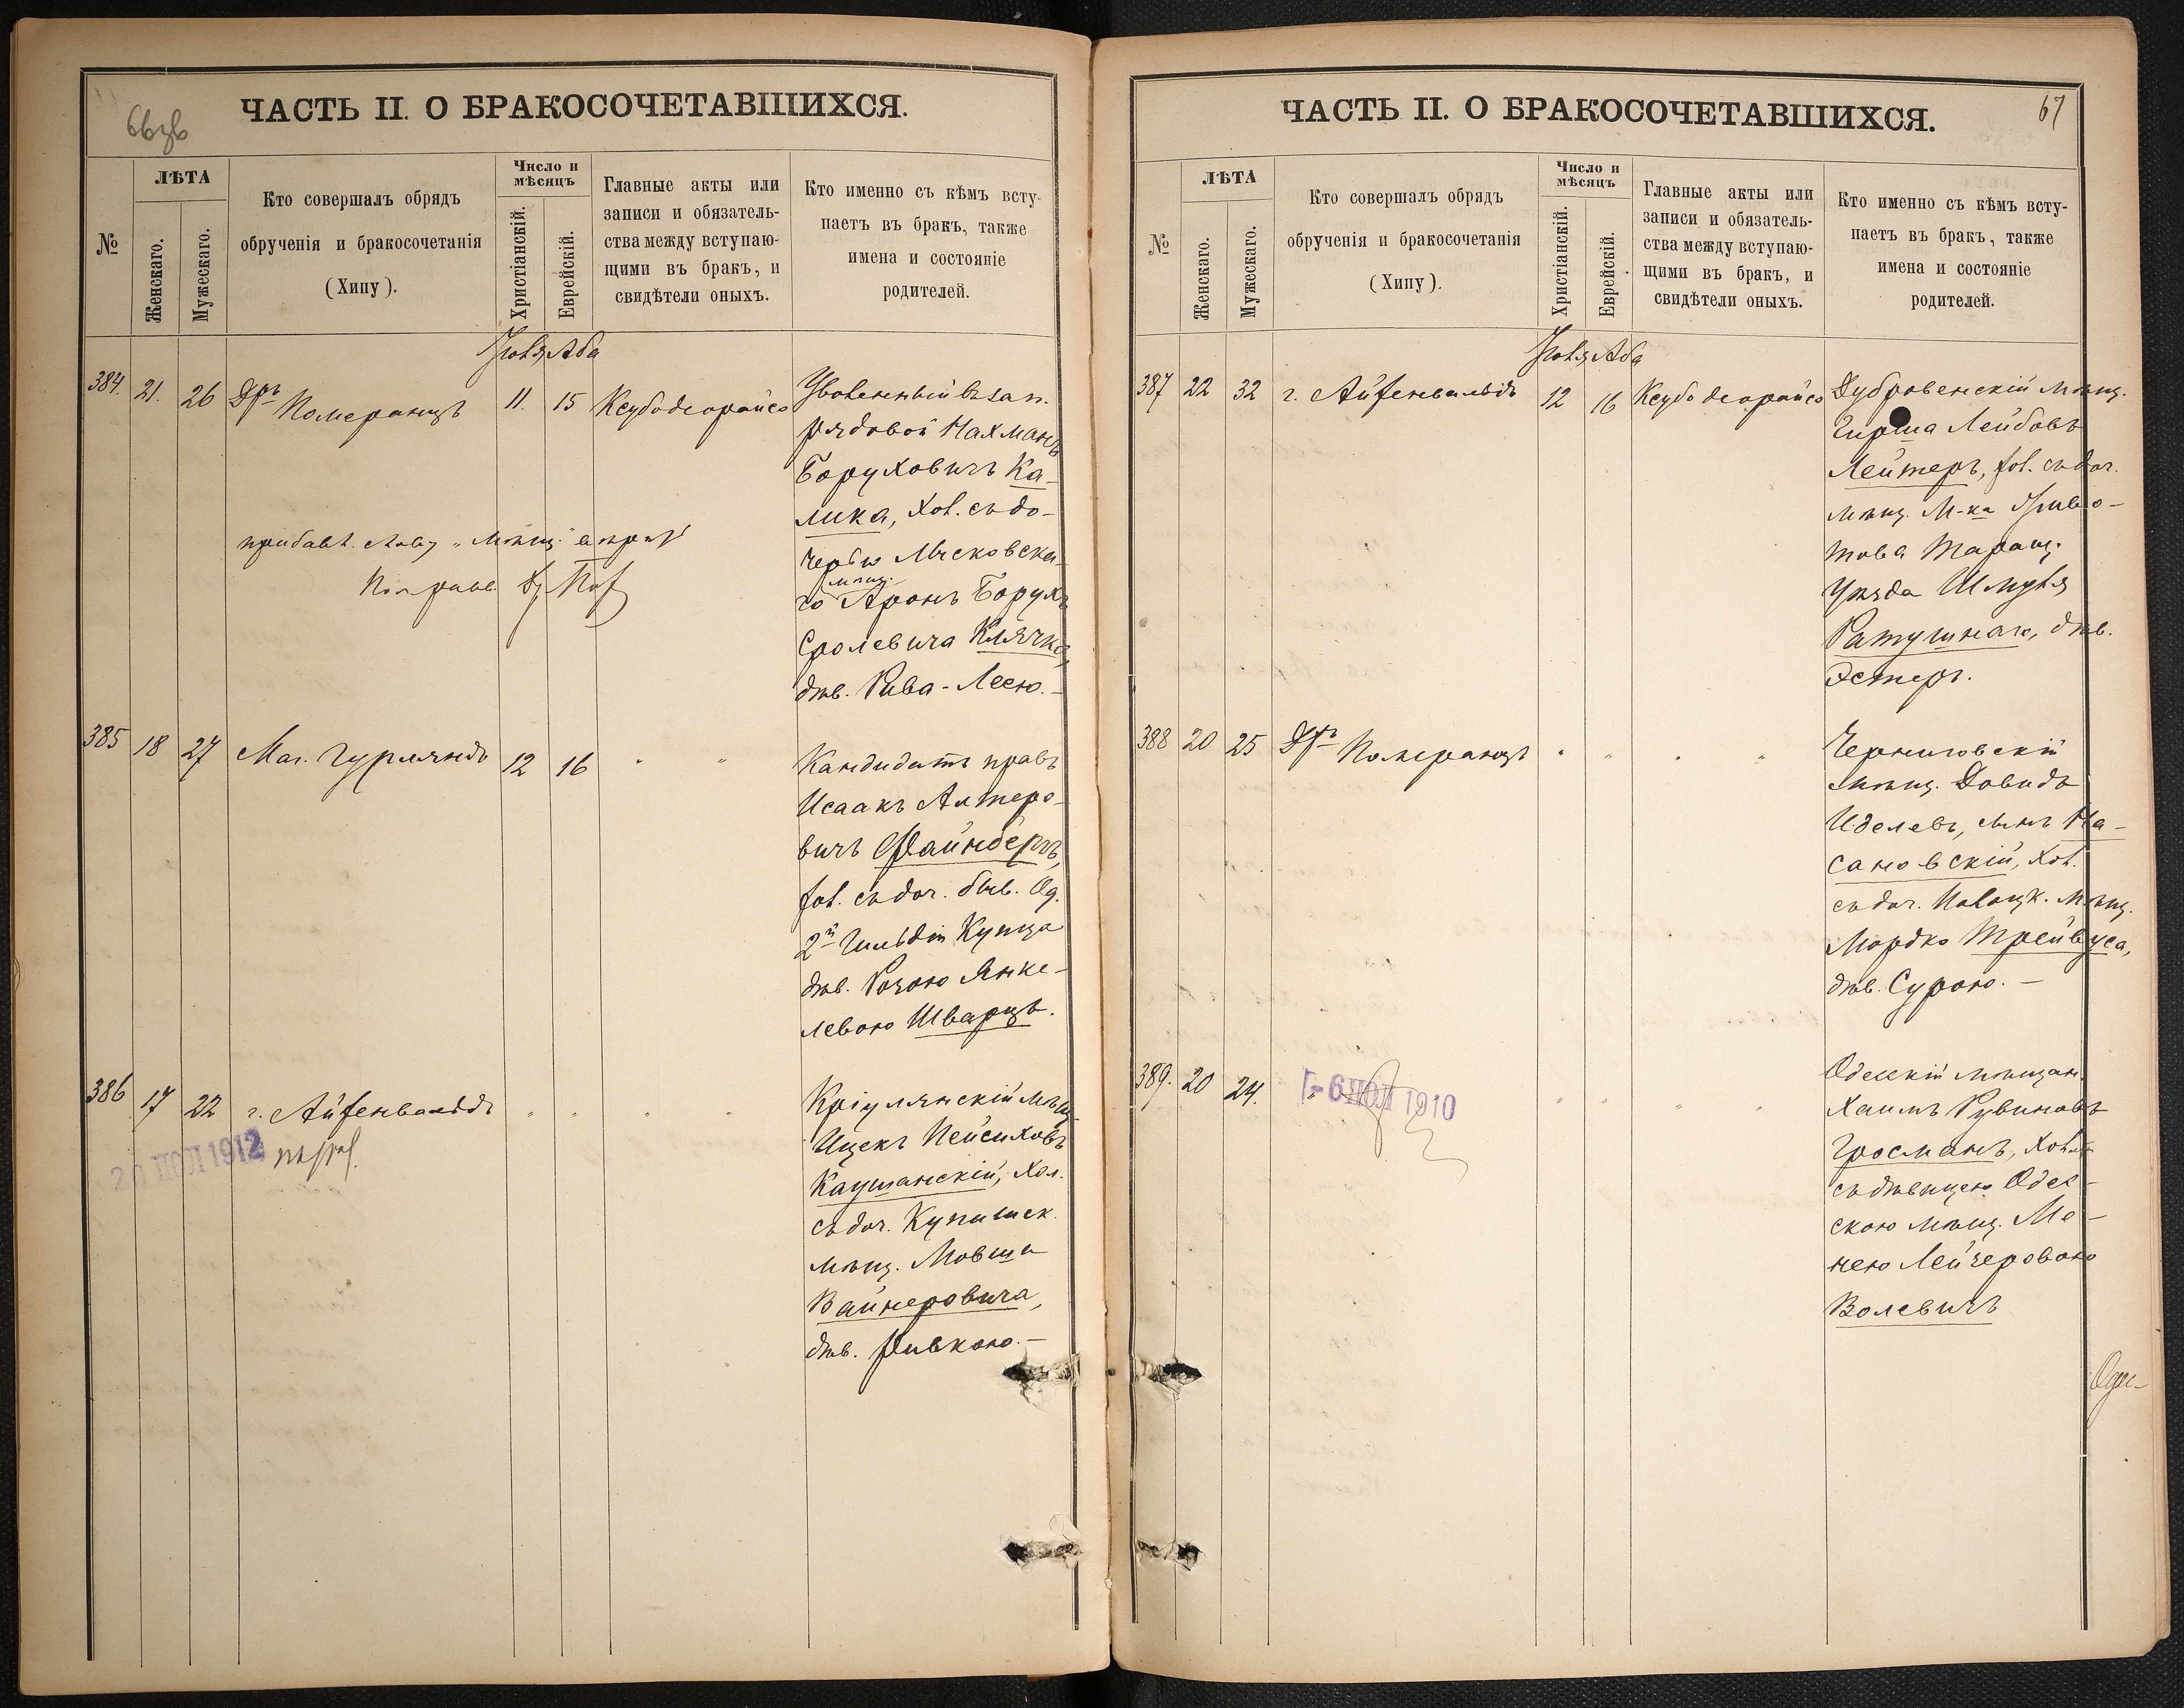 ЧАСТЬ II. О БРАКОСОЧЕТАВШИХСЯ.
№
ЛѢТА
Женскаго.
Мужескаго.
Кто совершалъ обрядъ
обрученія и бракосочетанія
(Хипу).
Число и
мѣсяцъ
Христіанскій.
Еврейскій.
Главные акты или
записи и обязатель-
ства между вступаю-
щими въ бракъ, и
свидѣтели оныхъ.
Кто именно съ кѣмъ всту-
паетъ въ бракъ, также
имена и состояніе
родителей.
Іюля, Аба
384. 21. 26 Дръ Померанцъ 11. 15 Ксубодеорайсо
Уволенный въ зап.
рядовой Нахманъ
Боруховичъ Ка-
лика, хол. съ до-
черью Мясковска-
мѣщ.
го Аронъ Борухъ
Сролевича Клячко,
дѣв. Рива-Леею.-
385 18 27 Маг. Гурляндъ 12 16 " "
Кандидатъ правъ
Исаакъ Алтеро-
вичъ Файнбергъ,
хол. съ доч. быв. Од.
2й Гильдіи Купца
дѣв. Розою Янке-
левою Шварцъ.
386 17 22 г. Айзенвальдъ " " " "
20 ИЮЛ 1912
Кріулянскій мѣщ.
Ицекъ Пейсиховъ
Каушанскій, хол.
съ доч. Купишск.
мѣщ. Мовши
Вайнеровича,
дѣв. Ривкою.-
ЧАСТЬ II. О БРАКОСОЧЕТАВШИХСЯ.
67
№
ЛѢТА
Женскаго.
Мужескаго.
Кто совершалъ обрядъ
обрученія и бракосочетанія
(Хипу).
Число и
мѣсяцъ
Христіанскій.
Еврейскій.
Главные акты или
записи и обязатель-
ства между вступаю-
щими въ бракъ, и
свидѣтели оныхъ.
Кто именно съ кѣмъ всту-
паетъ въ бракъ, также
имена и состояніе
родителей.
Іюля, Аба
387 22 32 г. Айзенвальдъ 12 16 Ксубо деорайсо
Дубровенскій мѣщ.
Гирша Лейбовъ
Лейтеръ, хол. съ доч.
мѣщ. М-ка
Таращ.
Уѣзда Шмуля
Ратушнаго, дѣв.
Эстеръ.
388 20 25 Дръ Померанцъ " " " "
Черниговскій
мѣщ. Довидъ
Иделевъ, сынъ На-
сановскій, хол.
съ доч. Полоцк. мѣщ.
Мордко Трейвуса,
дѣв. Сурою.-
389. 20 24. " " " " "
6 ИЮЛ 1910
Одесскій мѣщан.
Хаимъ Рувиновъ
Гросманъ, хол.
съ дѣвицею Одес-
скою мѣщ. Ме-
нею Лейзеровою
Волевичъ